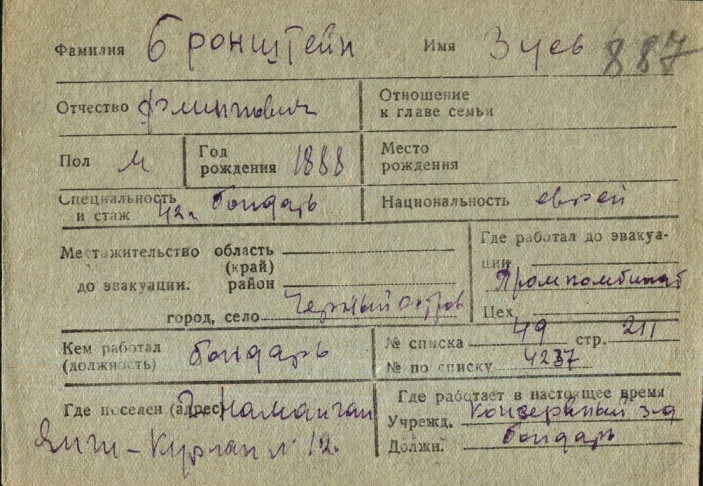 Фамилия Бронштейн Имя Зуев 887
Отчество
Отношение
к главе семьи
Пол М Год
рождения 1888 Место
рождения
Специальность
и стаж 42г. бондарь Национальность еврей
Местожительство область
(край)
до эвакуации. район
город, село Черный остров
Где работал до эвакуа-
ции
Промкомбинат
Цех
Кем работал
(должность) бондарь
№ списка 49 стр. 211
№ по списку 4237
Где поселен (адрес) г. Наманган
Янги-Курган № 12.
Где работает в настоящее время
Учрежд. Консервный з-д
Должн. бондарь